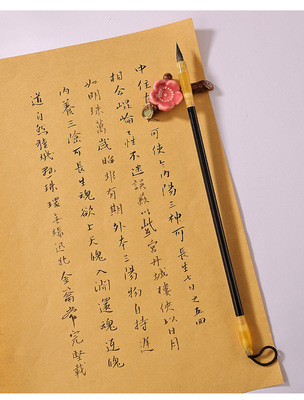 中住可使七內陽三神可長生七日之五回
相合崐崘之性不迷誤蔽以紫宮丹城樓俠以日月
如明珠萬歲昭非有期外本三陽物自
內養三陰可長生魂欲上天魄入淵還魂返魄
道自然璇璣懸珠環無端迅牝金籥常完堅載